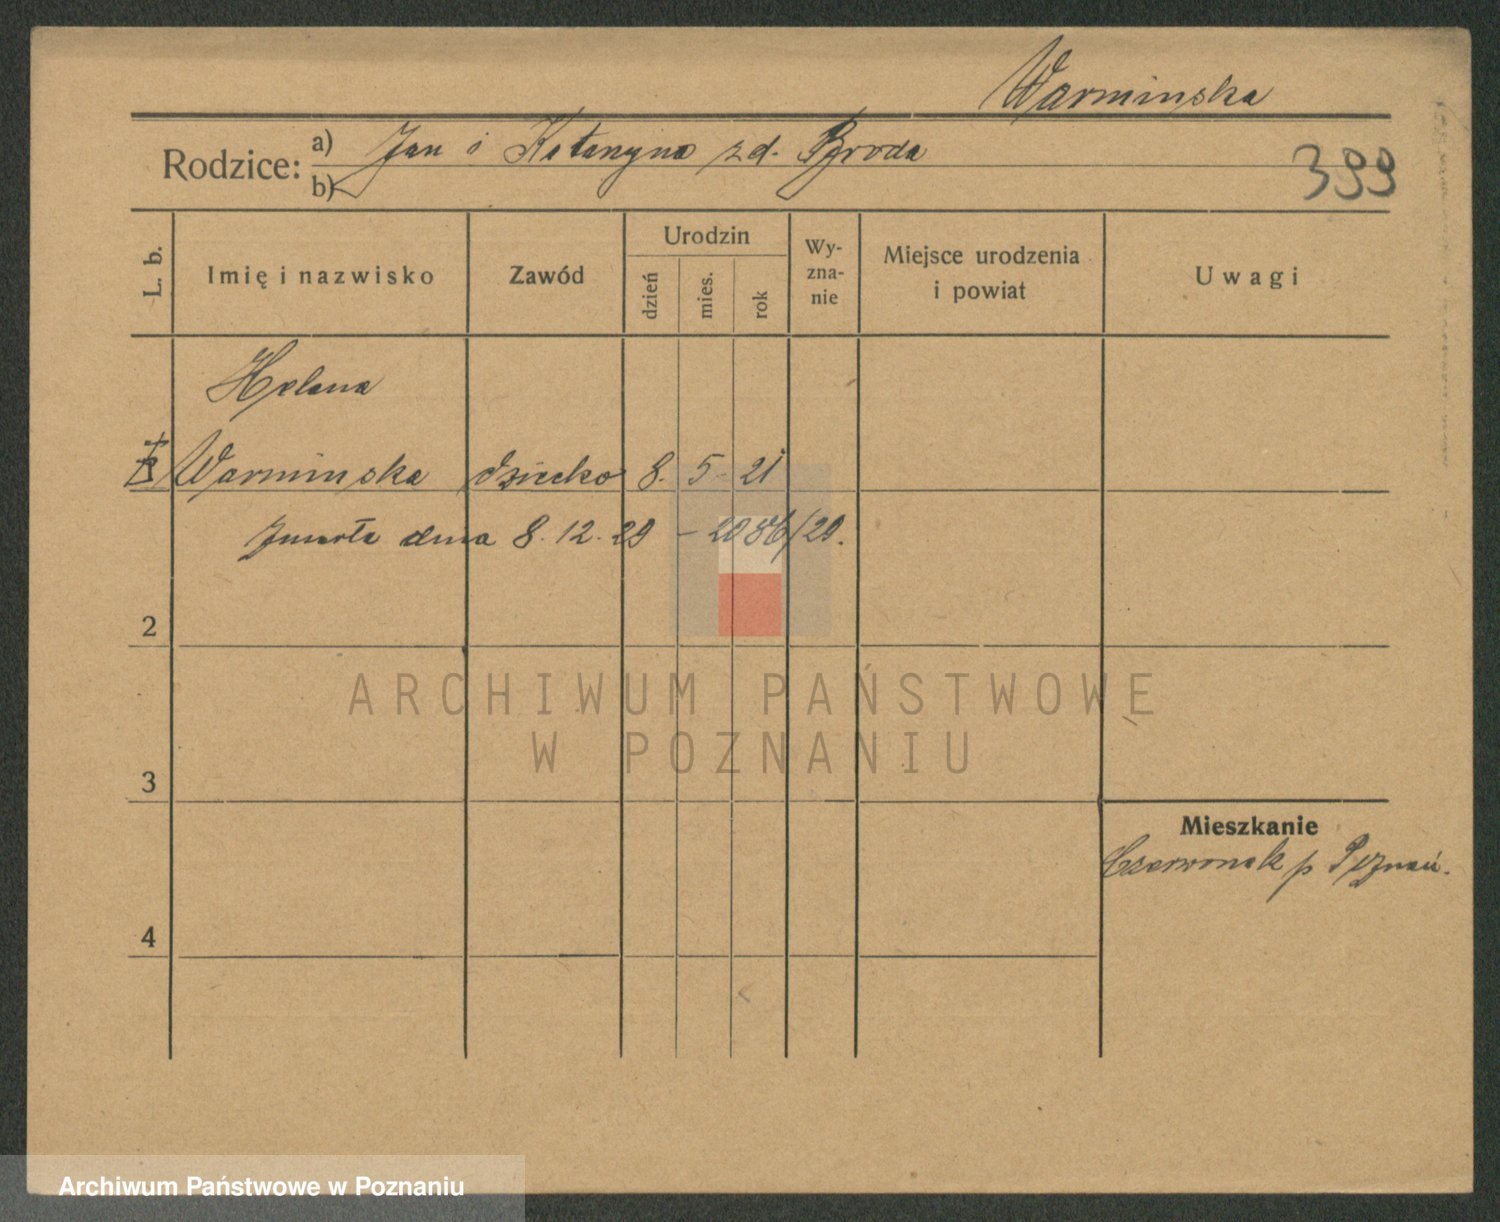 Warminska
Rodzice: a) Jan i Katarzyna zd. Broda
b)
399
L. b.
Imię i nazwisko
Zawód
Urodzin
dzień
mies.
rok
Wy-
zna-
nie
Miejsce urodzenia
i powiat
Uwagi
Helena
Warminska dziecko 8. 5 - 21
Zmarła dnia 8. 12. 29 - 2086/29.
2
3
4
Mieszkanie
Czerwonak p Poznań.
ARCHIWUM PAŃSTWOWE
W POZNANIU
Archiwum Państwowe w Poznaniu